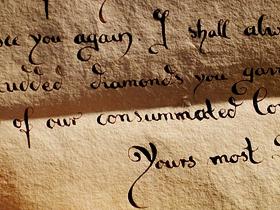 see you again. I shall alw
udded diamonds you gav
of our consummated lo
Yours most